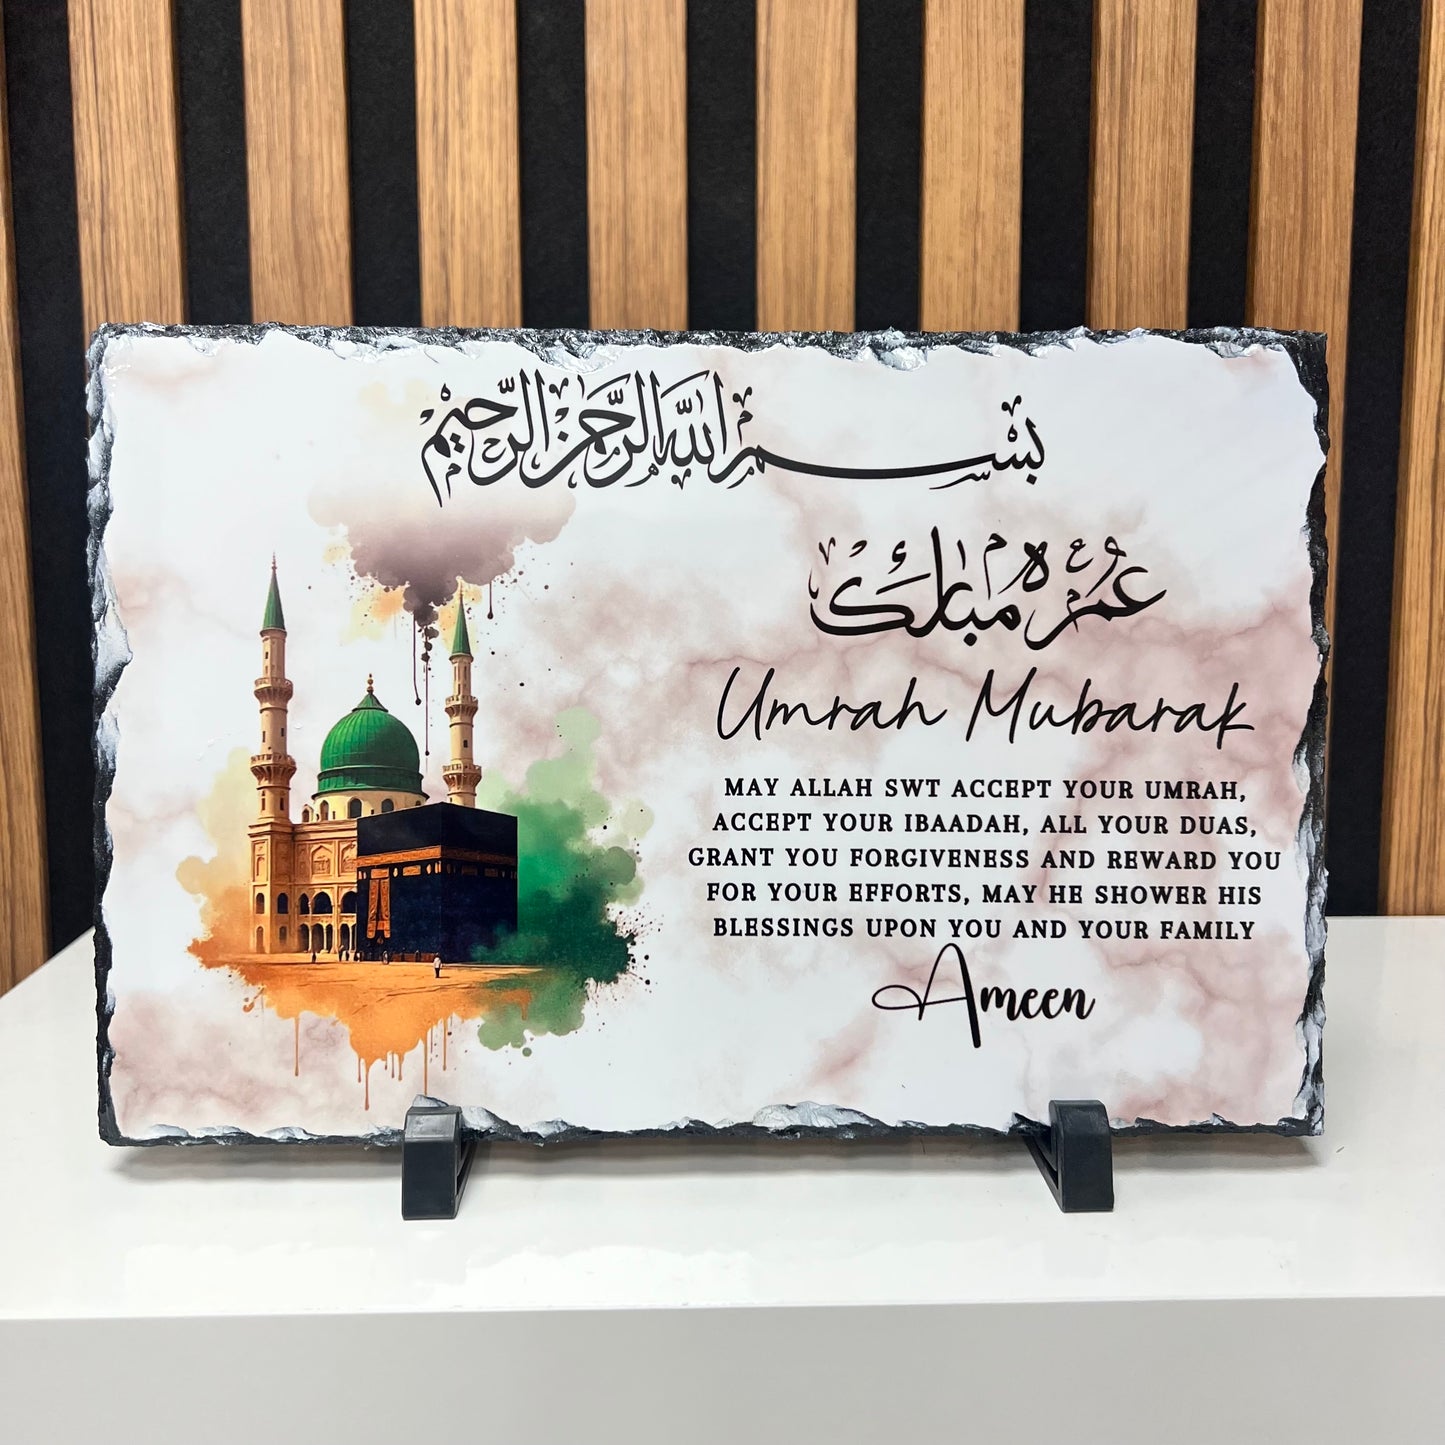 بسم الله الرحمن الرحيم
عمره مبارك
Umrah Mubarak
MAY ALLAH SWT ACCEPT YOUR UMRAH,
ACCEPT YOUR IBAADAH, ALL YOUR DUAS,
GRANT YOU FORGIVENESS AND REWARD YOU
FOR YOUR EFFORTS, MAY HE SHOWER HIS
BLESSINGS UPON YOU AND YOUR FAMILY
Ameen